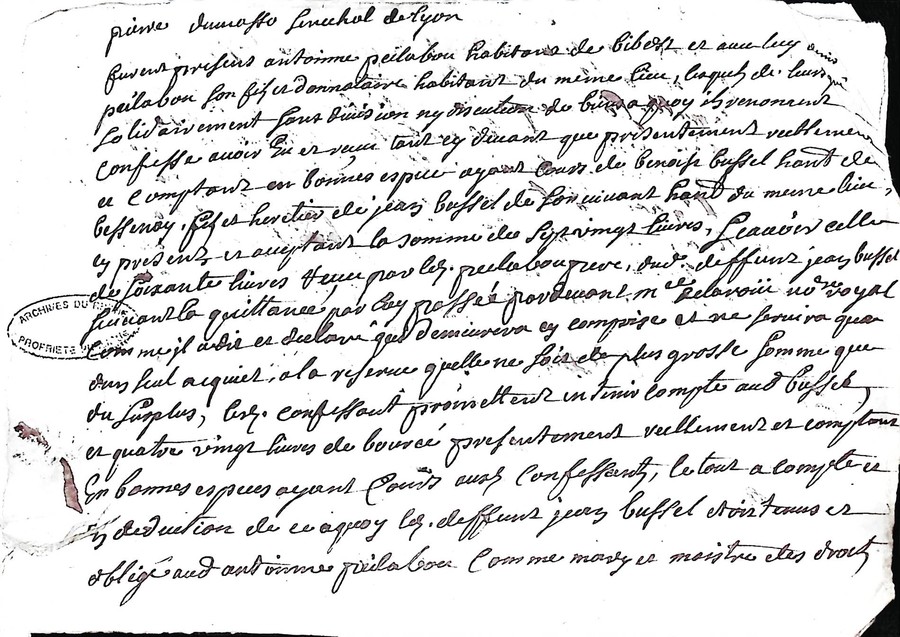 pierre dumasso senechal de Lyon
furent presens antoinne peilabou habitant de bibost et avec luy
peilabou son filz et donnataire habitant du meme lieu, lesquels de leurs
solidairement sans division ny discution de biens a quoy ils renoncent
confesse avoir Eu et receu tant cy devant que presentement reellement
et comptant en bonnes espece ayant cours de benoist bussel habt de
bessenay, filz et heritier de jean bussel de son vivant habt du meme lieu,
cy present et aceptant la somme de sept vingt livres, Scavoir celle
de soixante livres receue par led. peilabou pere, dud. deffunt jean bussel
suivant la quittance par luy passée pardevant me delaroüe nore royal
comme il a dit et declaré qui demeurera cy comprise et ne servira que
dun seul acquiet, a la reserve quelle ne soit de plus grosse somme que
du surplus, lesd. confessant promettent en tenir compte aud bussel,
et quatre vingt livres de
presentement reellement et comptant
En bonnes especes ayant Cours ausd confessants, le tout a compte et
En deduction de ce aquoy led. deffunt jean bussel etoit tenus et
obligé aud antoinne peilabou comme mary et maistre des droits
ARCHIVES DU
PROPRIETE